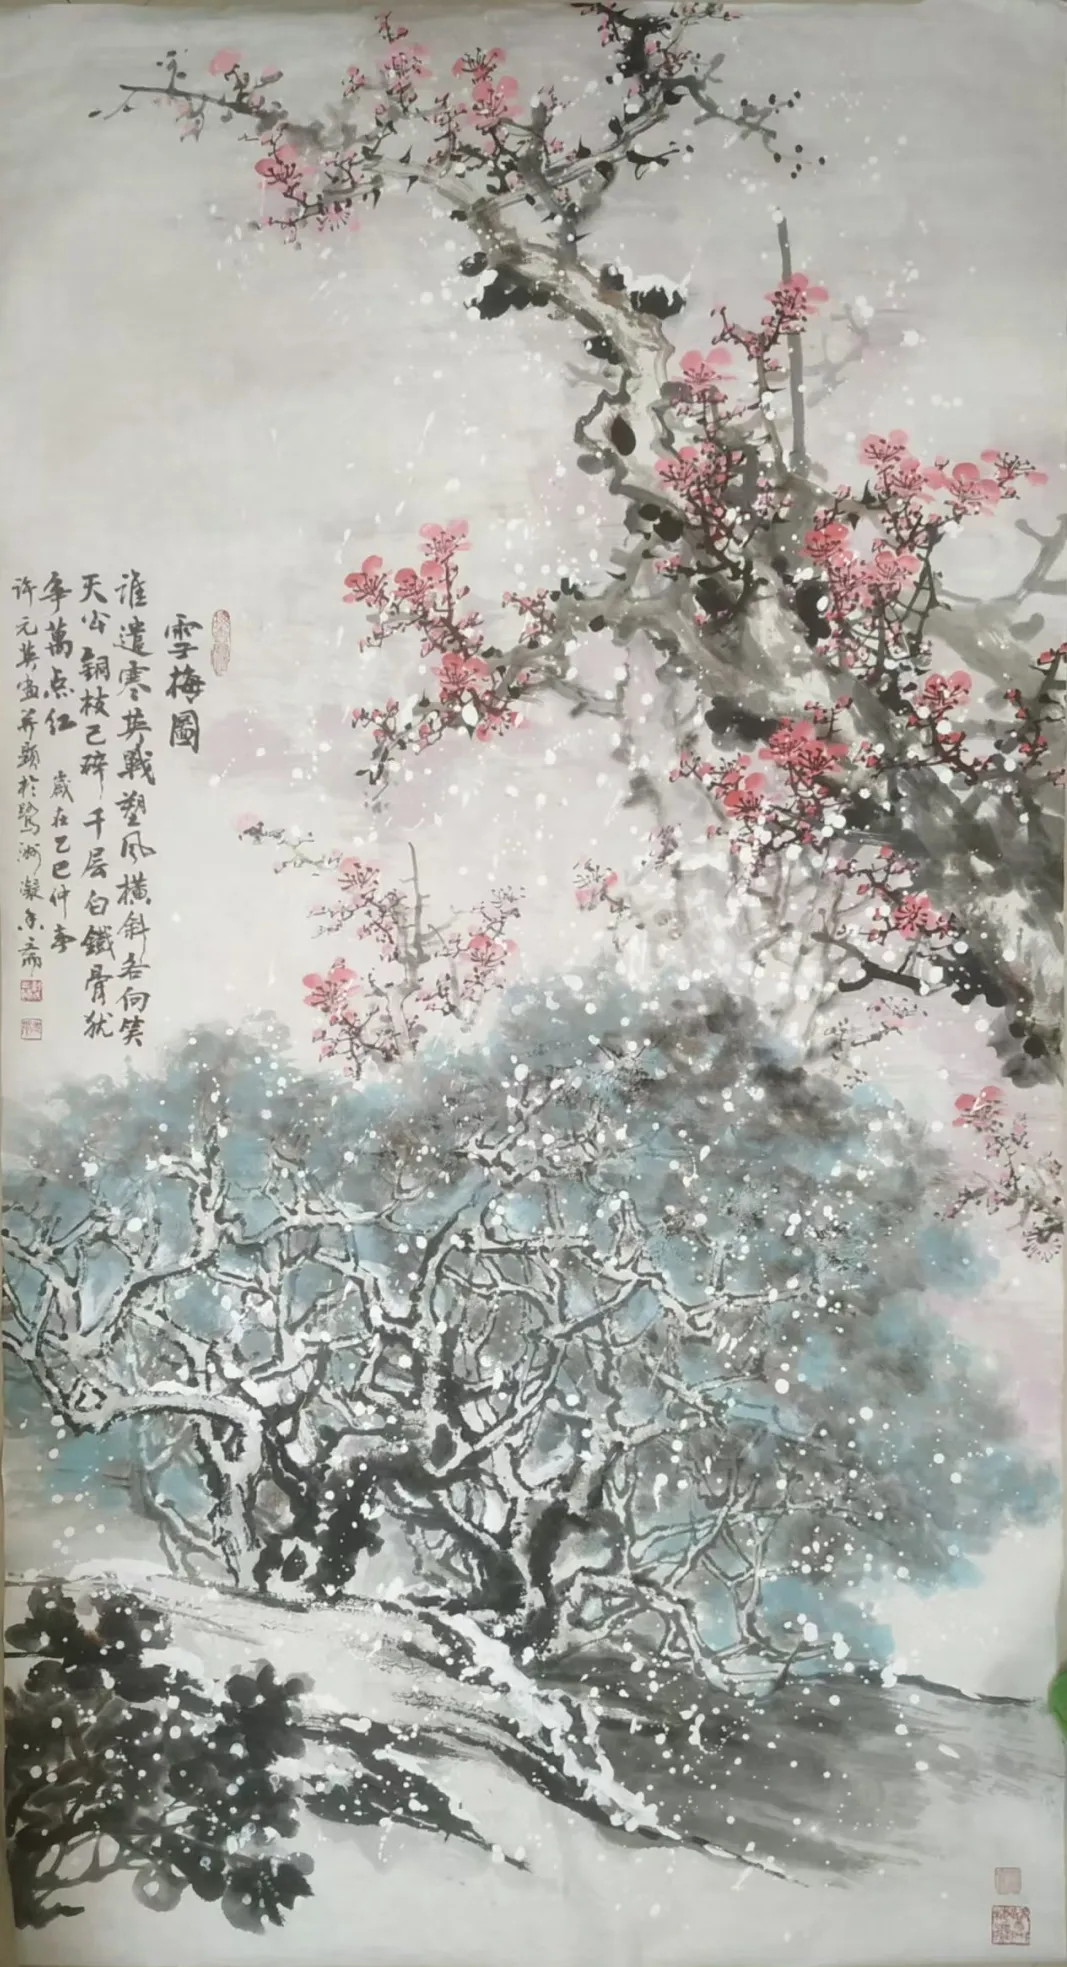 雪梅圖
誰遣寒英戰塑風橫斜各向笑
天公銅枝已碎千层白鐵骨犹
争萬点红 歲在乙巳仲春
许元英畫并題於鹭洲凝香斋